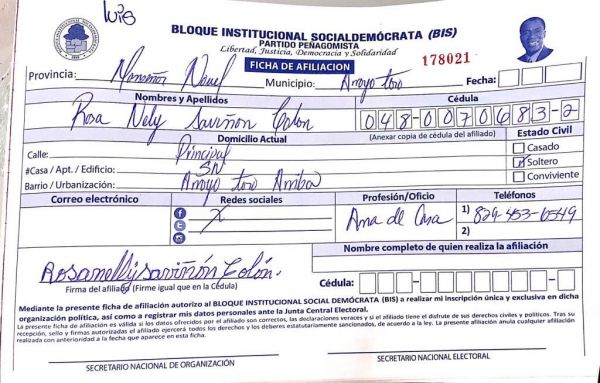 Luis
BLOQUE INSTITUCIONAL SOCIALDEMÓCRATA (BIS)
PARTIDO PEÑAGOMISTA
Libertad, Justicia, Democracia y Solidaridad
FICHA DE AFILIACION
178021
Provincia: Monseñor Nouel Municipio: Arroyo toro Fecha:
Nombres y Apellidos Cédula
Rosa Nely Saviñon Colon 048-0070683-2
(Anexar copia de cédula del afiliado)
Domicilio Actual Estado Civil
Calle: Principal Casado
#Casa / Apt. / Edificio: SN Soltero
Barrio / Urbanización: Arroyo toro Arriba Conviviente
Correo electrónico Redes sociales Profesión/Oficio Teléfonos
X Ama de Casa 1) 829-453-6549
2)
Nombre completo de quien realiza la afiliación
Rosanelly saviñón Colón.
Firma del afiliado (Firme igual que en la Cédula) Cédula:
Mediante la presente ficha de afiliación autorizo al BLOQUE INSTITUCIONAL SOCIAL DEMÓCRATA (BIS) a realizar mi inscripción única y exclusiva en dicha
organización política, así como a registrar mis datos personales ante la Junta Central Electoral.
La presente ficha de afiliación es válida si los datos ofrecidos por el afiliado son correctos, las declaraciones veraces y si el afiliado tiene el disfrute de sus derechos civiles y políticos. Tras su
recepción, sello y firmas autorizadas el afiliado ejercerá todos los derechos y los deberes estatutariamente sancionados, de acuerdo a la ley. La presente afiliación anula cualquier afiliación
realizada con anterioridad a la fecha que aparece en esta ficha.
SECRETARIO NACIONAL DE ORGANIZACIÓN SECRETARIO NACIONAL ELECTORAL